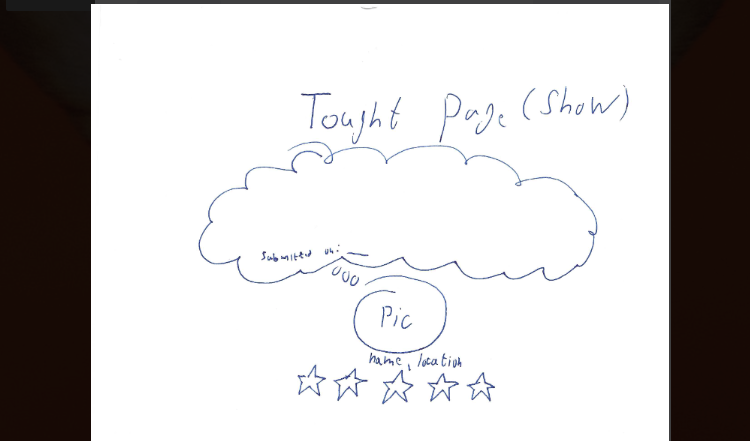 Tought Page (Show)
Submitted on:
Pic
name, location